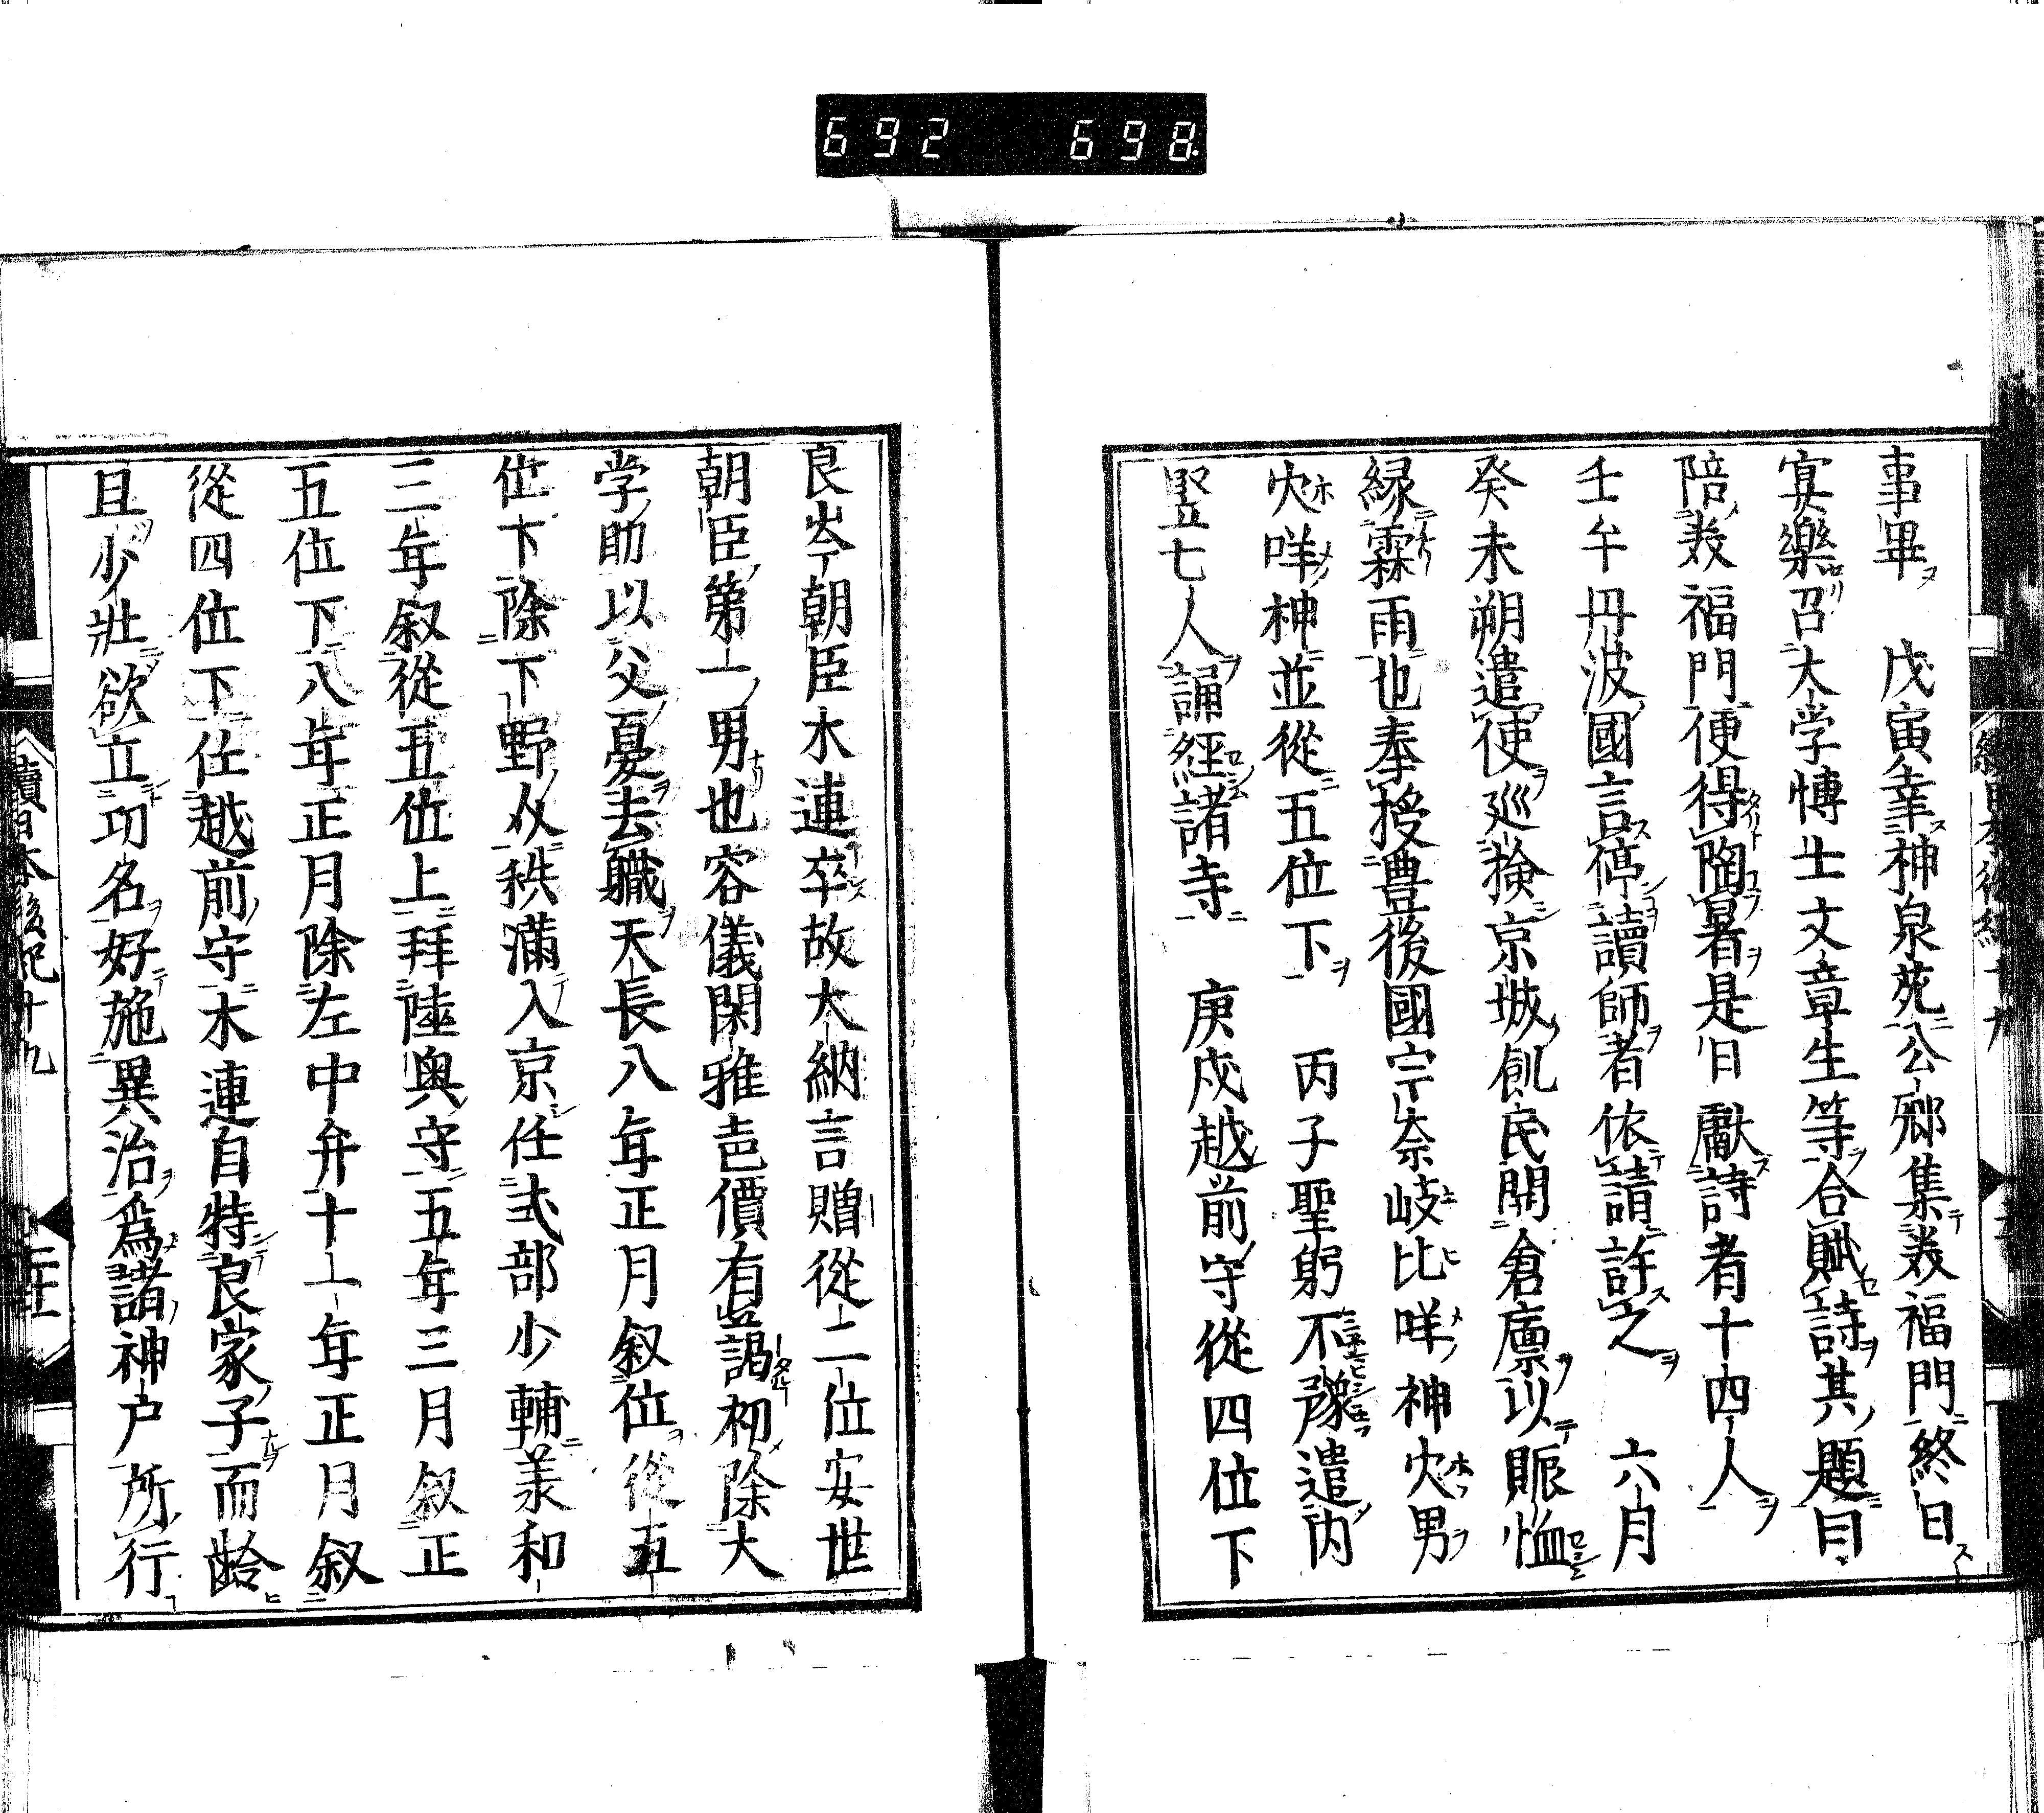 692 698
事畢 戊寅幸神泉苑公卿集義福門終日
宴樂召大学博士文章生等合賦詩其題曰
陪義福門便得陶暑是日獻詩者十四人
壬午丹波國言停讀師者依請許之 六月
癸未朔遣使巡検京城飢民開倉廩以賑恤
縁霖雨也奉授豊後國宗奈岐比咩神火男
火咩神並從五位下 丙子聖躬不豫遣内
豎七人誦經諸寺 庚戌越前守從四位下
良岑朝臣木連卒故大納言贈從二位安世
朝臣第一男也容儀閑雅壱價有豈謁初除大
学助以父憂去職天長八年正月叙位從五
位下除下野介秩満入京任式部少輔羕和
三年叙從五位上拜陸奥守五年三月叙正
五位下八年正月除左中弁十一年正月叙
從四位下任越前守木連自特良家子而齢
且少壯欲立功名好施異治爲諸神戸所行
續日本後紀十九